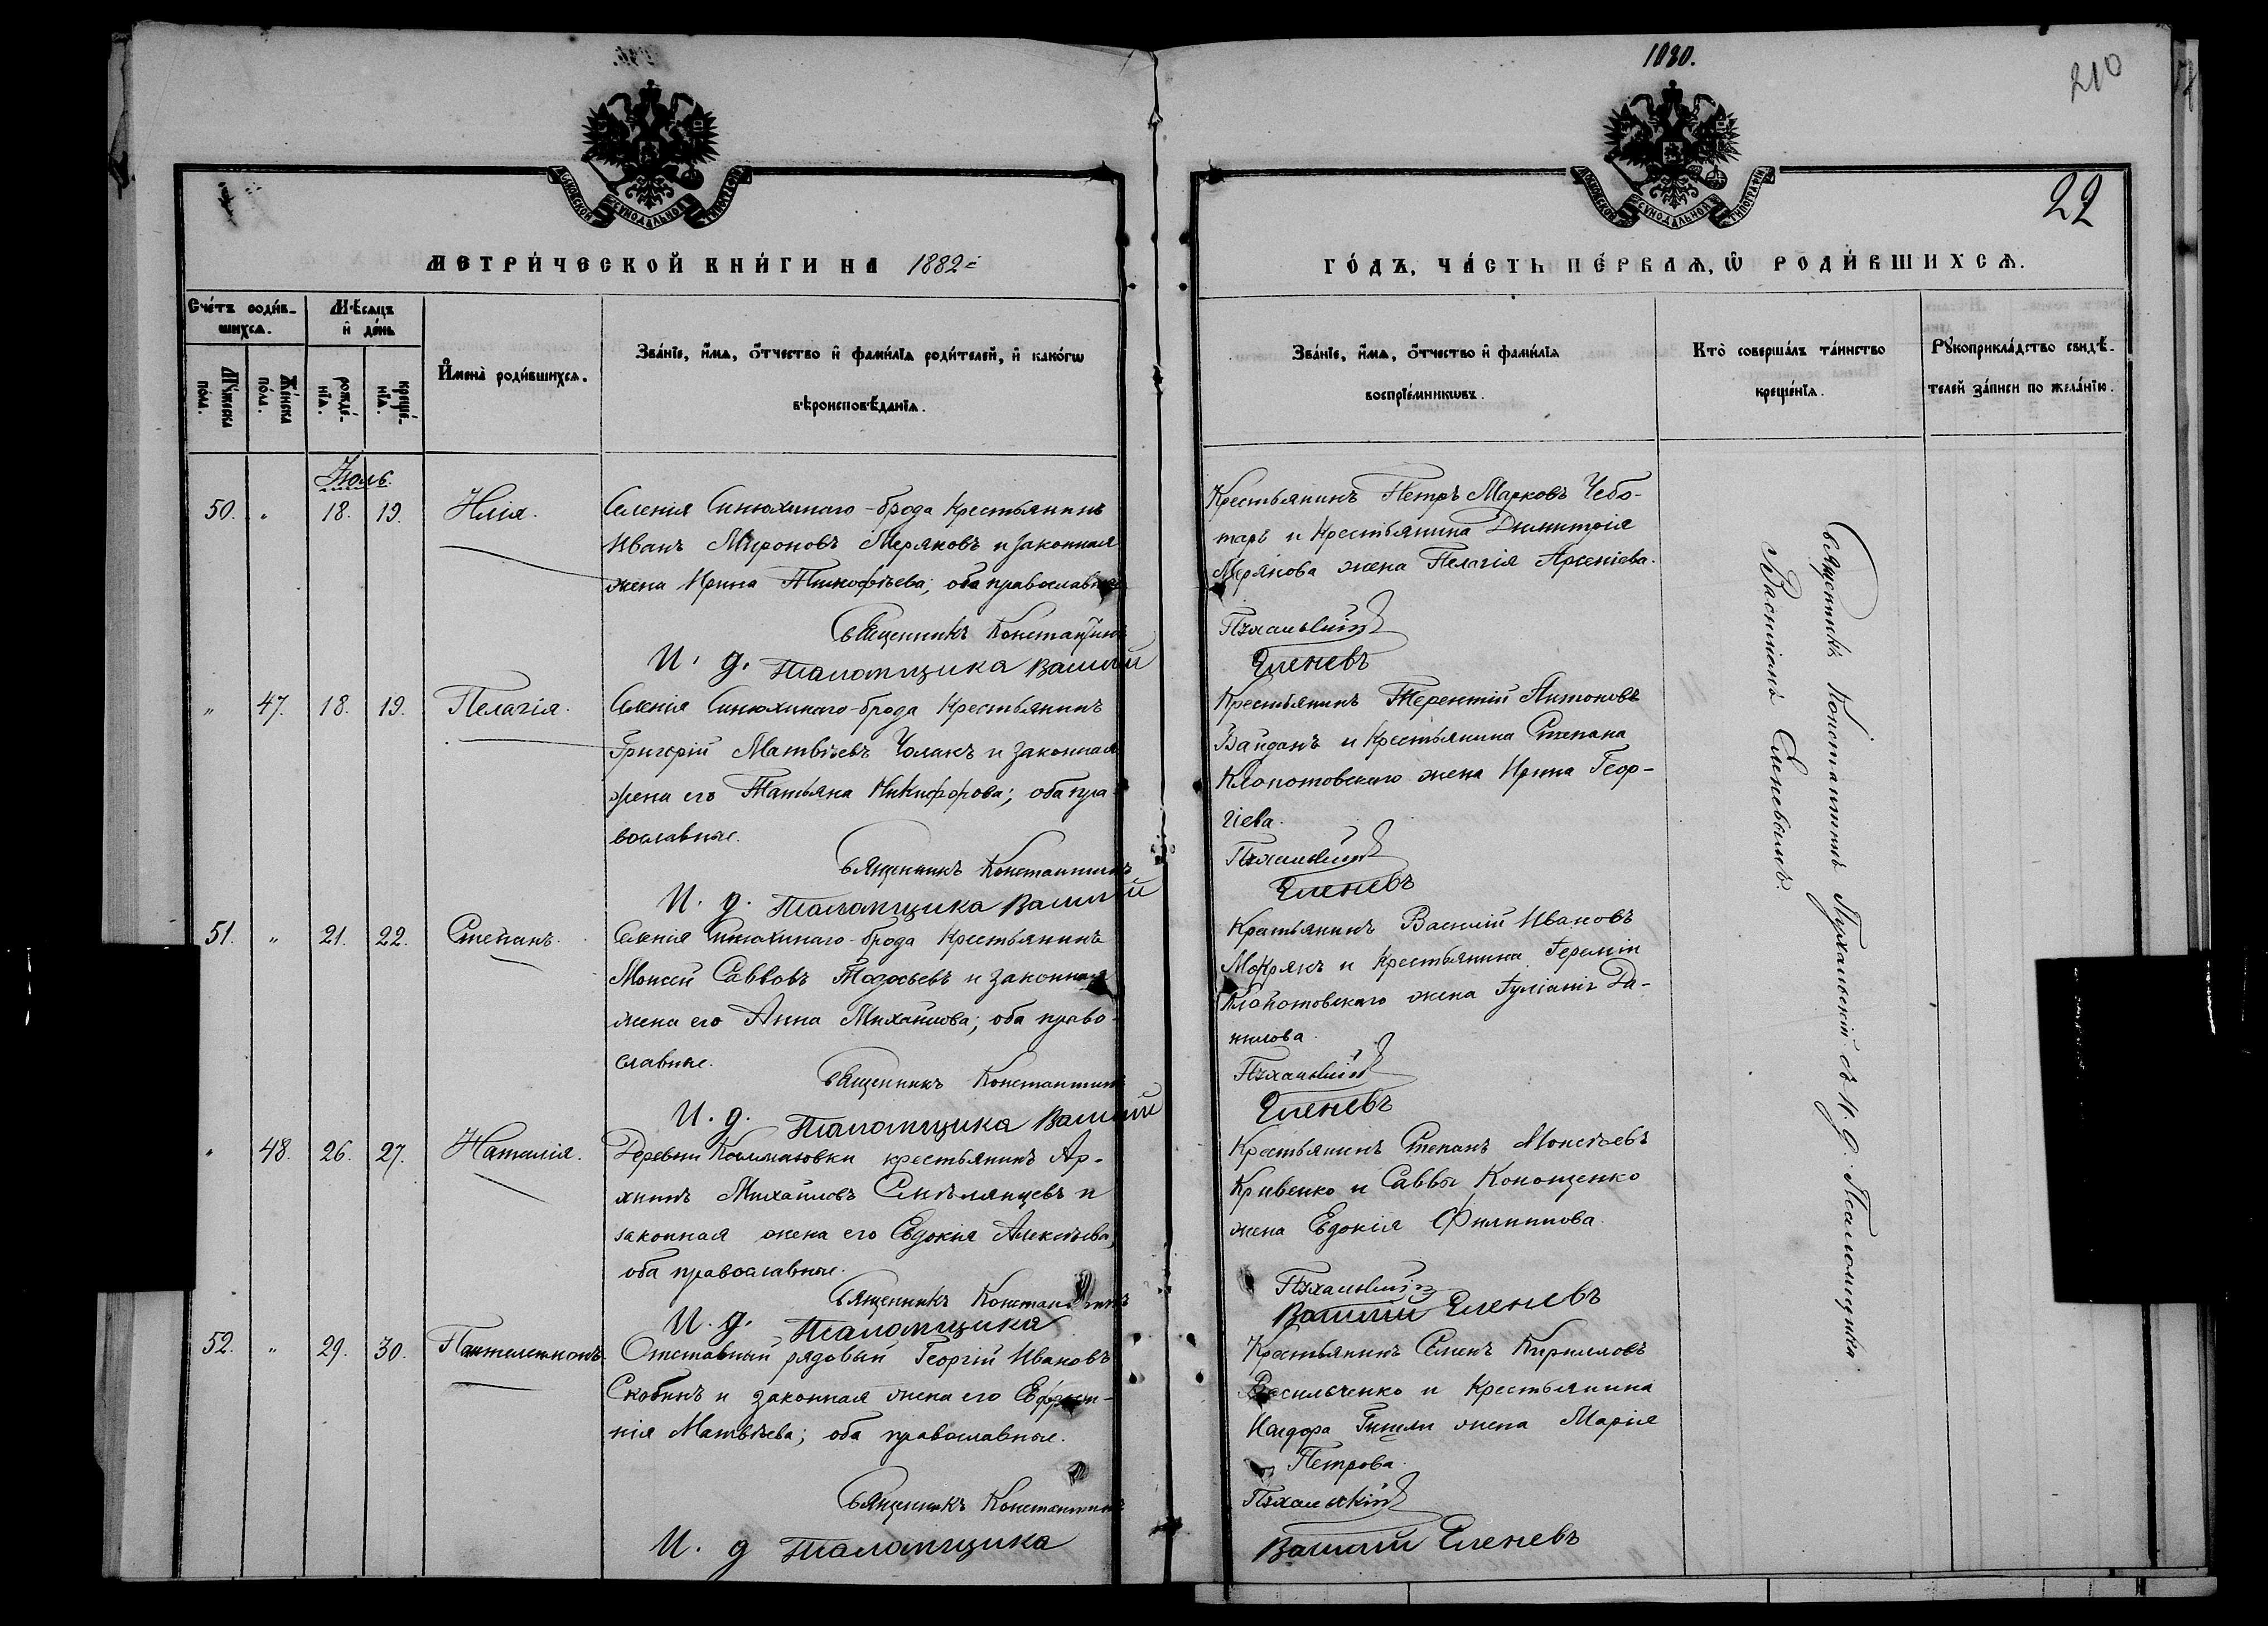 1020.
210
22
МОСКОВСКОЙ СѴНОДАЛЬНОЙ ТИПОГРАФІИ
МОСКОВСКОЙ СѴНОДАЛЬНОЙ ТИПОГРАФІИ
МЕТРИ́ЧЕСКОЙ КНИ́ГИ НА 1882й
ГО́ДЪ, ЧА́СТЬ ПЕ́РВАѦ, Ѡ҆ РОДИ́ВШИХСѦ.
Сче́тъ роди́в-
шихсѧ.
Мѣ́сѧцъ
и҆ де́нь
Мꙋ́жеска
по́ла.
Же́нска
по́ла.
рожде́-
нїѧ.
креще́-
нїѧ.
И҆мена̀ роди́вшихсѧ.
Зва́нїе, и҆́мѧ, ѻ҆́тчество и҆ фами́лїѧ роди́телей, и҆ какѡ́гѡ
вѣроисповѣ́данїѧ.
Зва́нїе, и҆́мѧ, ѻ҆́тчество и҆ фами́лїѧ
воспрїе́мникѡвъ.
Кто̀ соверша́лъ та́инство
креще́нїѧ.
Рꙋкоприкла́дство свидѣ́-
телей за́писи по жела́нїю.
Іюль.
50. " 18. 19. Илія.
Селенія Синюхинаго-брода крестьянинъ
Иванъ Мироновъ Меряковъ и законная
жена Ирина Тимофѣева; оба православные
Священникъ Константинъ
И. д. Псаломщика Василій
Крестьянинъ Петръ Марковъ Чебо-
таръ и крестьянина Димитрія
Мерякова жена Пелагія Арсеніева.
Пухальскій
Еленевъ
" 47. 18. 19. Пелагія.
Селенія Синюхинаго-брода крестьянинъ
Григорій Матвѣевъ Чолакъ и законная
жена его Татьяна Никифорова; оба пра-
вославные.
Священникъ Константинъ
И. д. Псаломщика Василій
Крестьянинъ Терентій Антоновъ
Вайданъ и крестьянина Степана
Клопотовскаго жена Ирина Геор-
гіева.
Пухальскій
Еленевъ
51. " 21. 22. Степанъ.
Селенія Синюхинаго-брода крестьянинъ
Моисей Саввовъ Тодосьевъ и законная
жена его Анна Михайлова; оба право-
славные.
Священникъ Константинъ
И. д. Псаломщика Василій
Крестьянинъ Василій Ивановъ
Мокрякъ и крестьянина Іереміи
Клопотовскаго жена Іуліанія Да-
нилова.
Пухальскій
Еленевъ
" 48. 26. 27. Наталія.
Деревни Колмазовки крестьянинъ Ар-
хипъ Михайловъ Синѣлянцевъ и
законная жена его Евдокія Алексѣева,
оба православные.
Священникъ Константинъ
И. д. Псаломщика
Крестьянинъ Степанъ Моисеевъ
Кривенко и Саввы Конощенко
жена Евдокія Филиппова.
Пухальскій
Василій Еленевъ
52. " 29. 30. Пантелеимонъ.
Отставный рядовый Георгій Ивановъ
Скобинъ и законная жена его Евфроси-
нія Матвѣева; оба православные.
Священникъ Константинъ
И. д Псаломщика
Крестьянинъ Семенъ Кирилловъ
Васильченко и крестьянина
Исидора жена Марія
Петрова.
Пухальскій
Василій Еленевъ
Священникъ Константинъ Пухальскій съ И. д. Псаломщика
Василіемъ Еленевымъ.